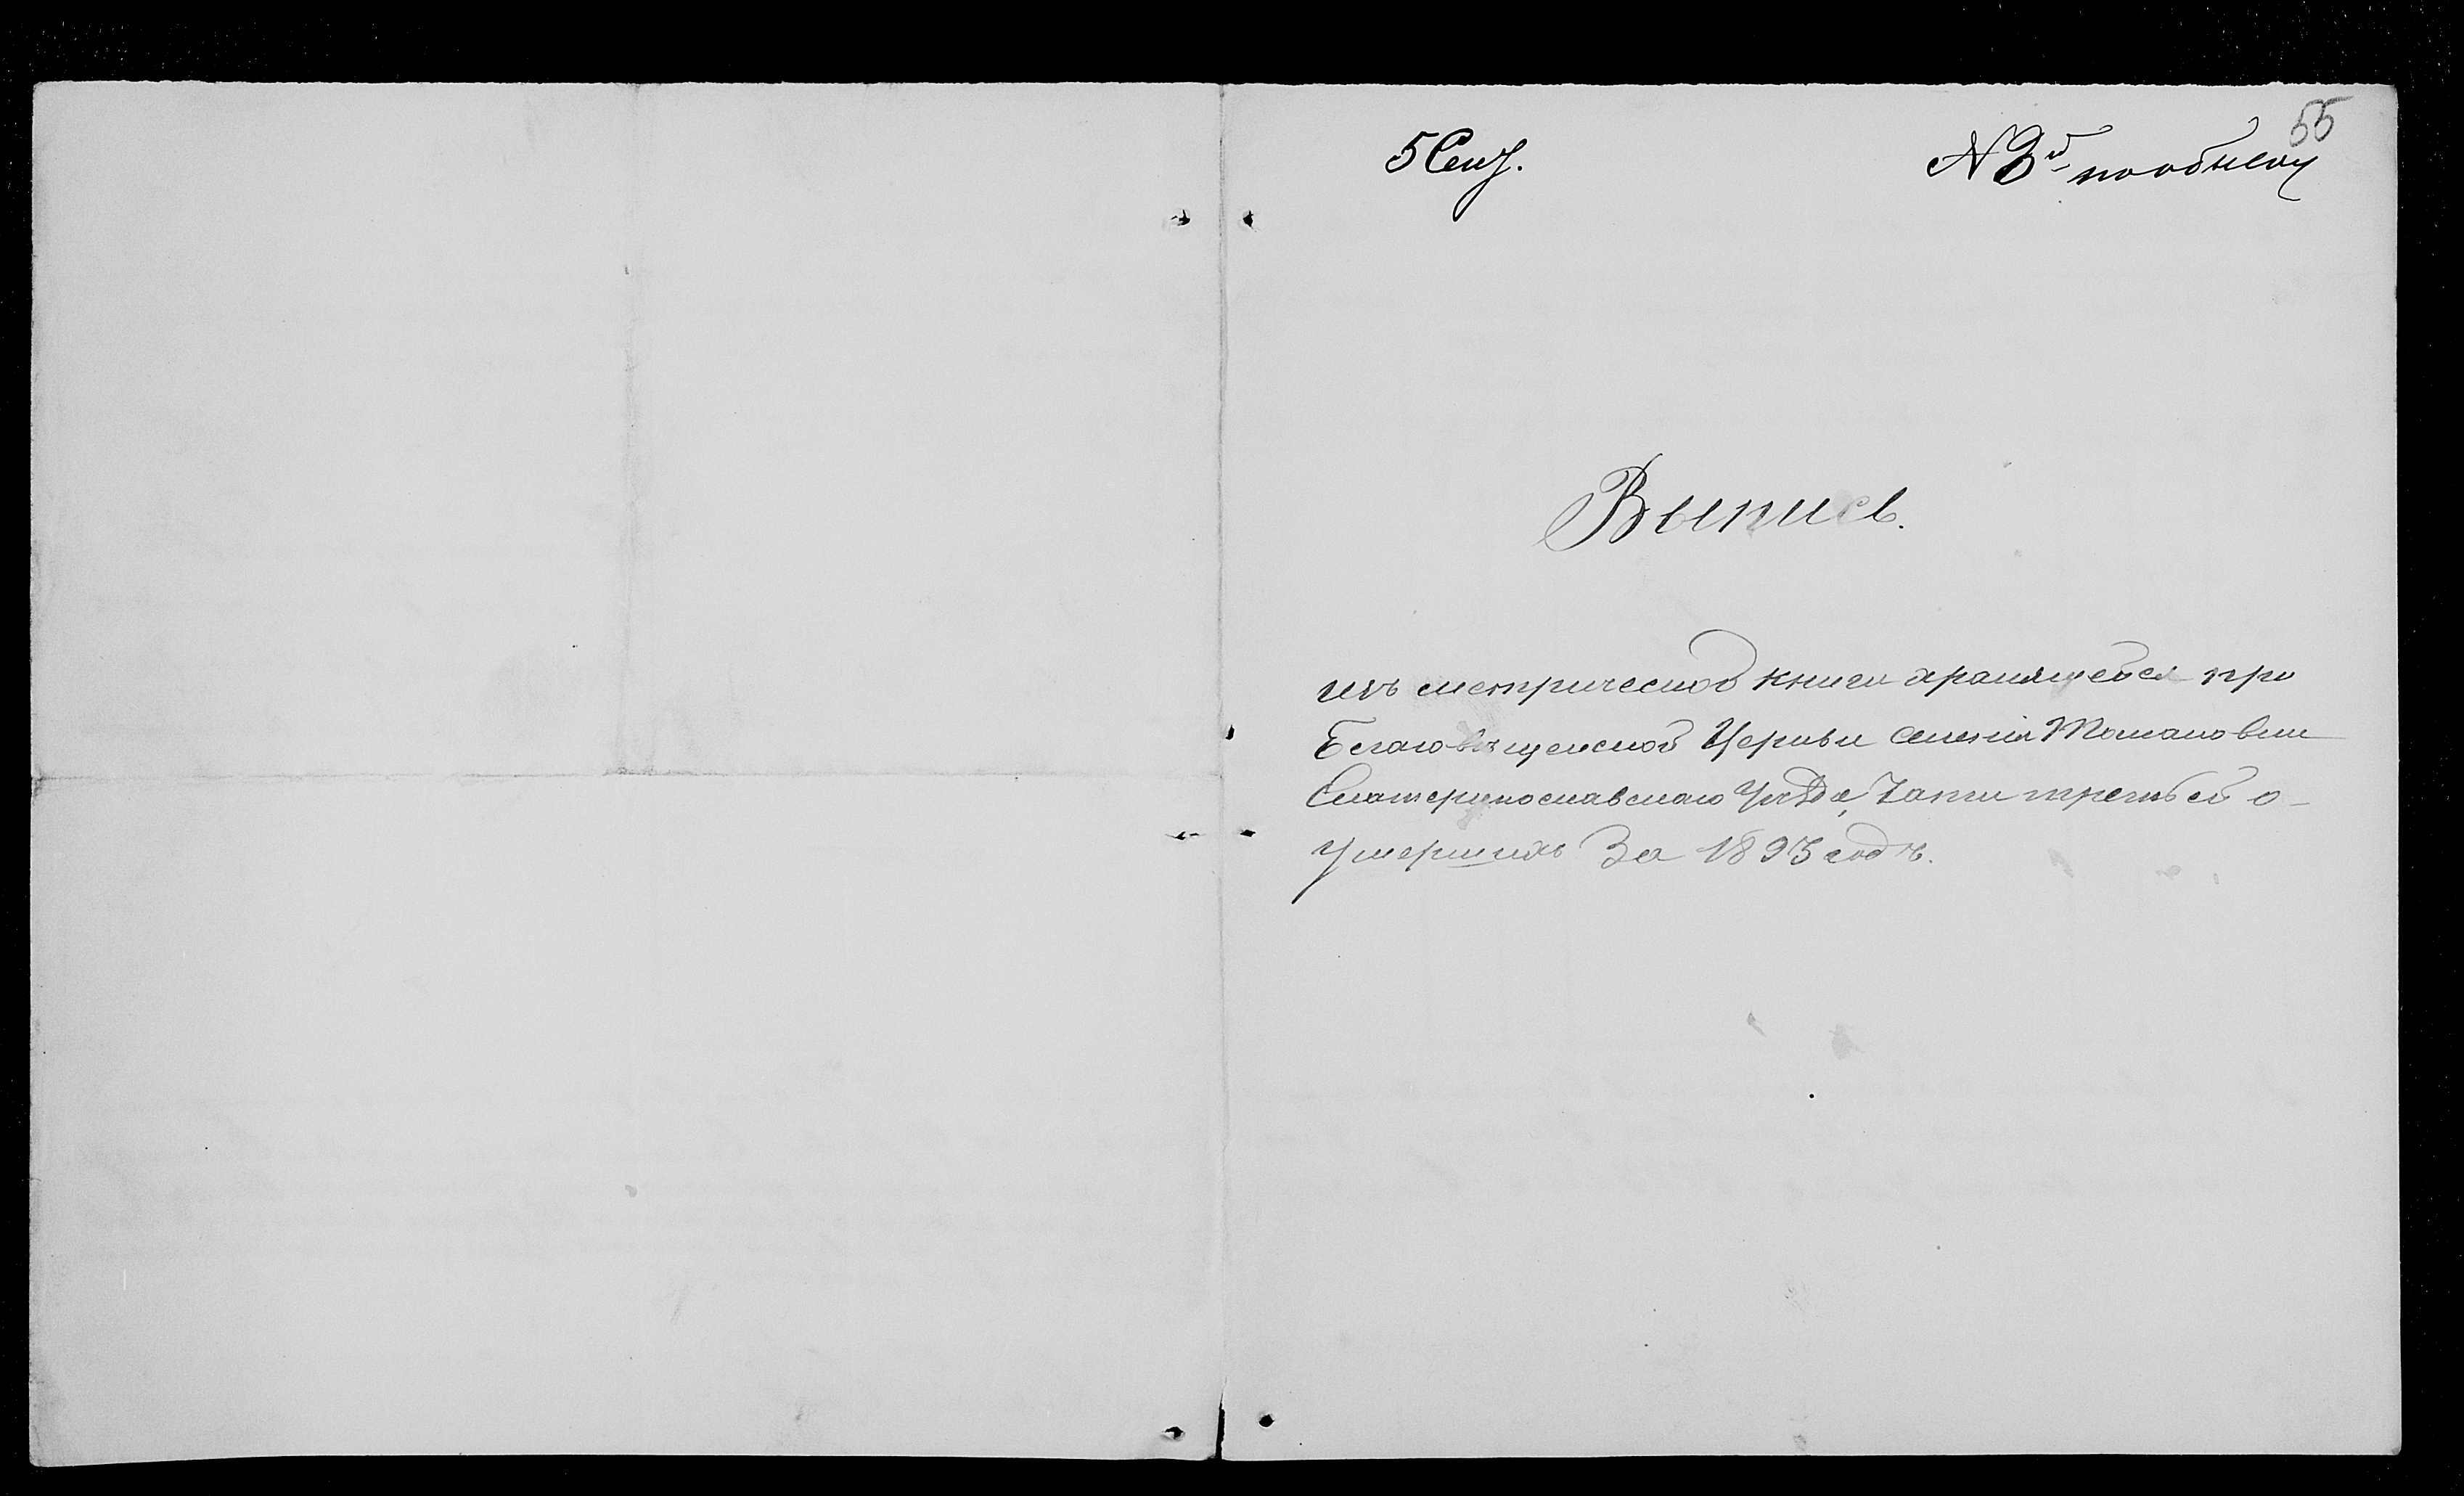 55
5 Сент.
№ 3й по обыску
Выпись.
изъ метрической книги хранящейся при
Благовѣщенской Церкви селенія Томаковки
Екатеринославскаго Уѣзда, Части третьей о
умершихъ за 1893 годъ.